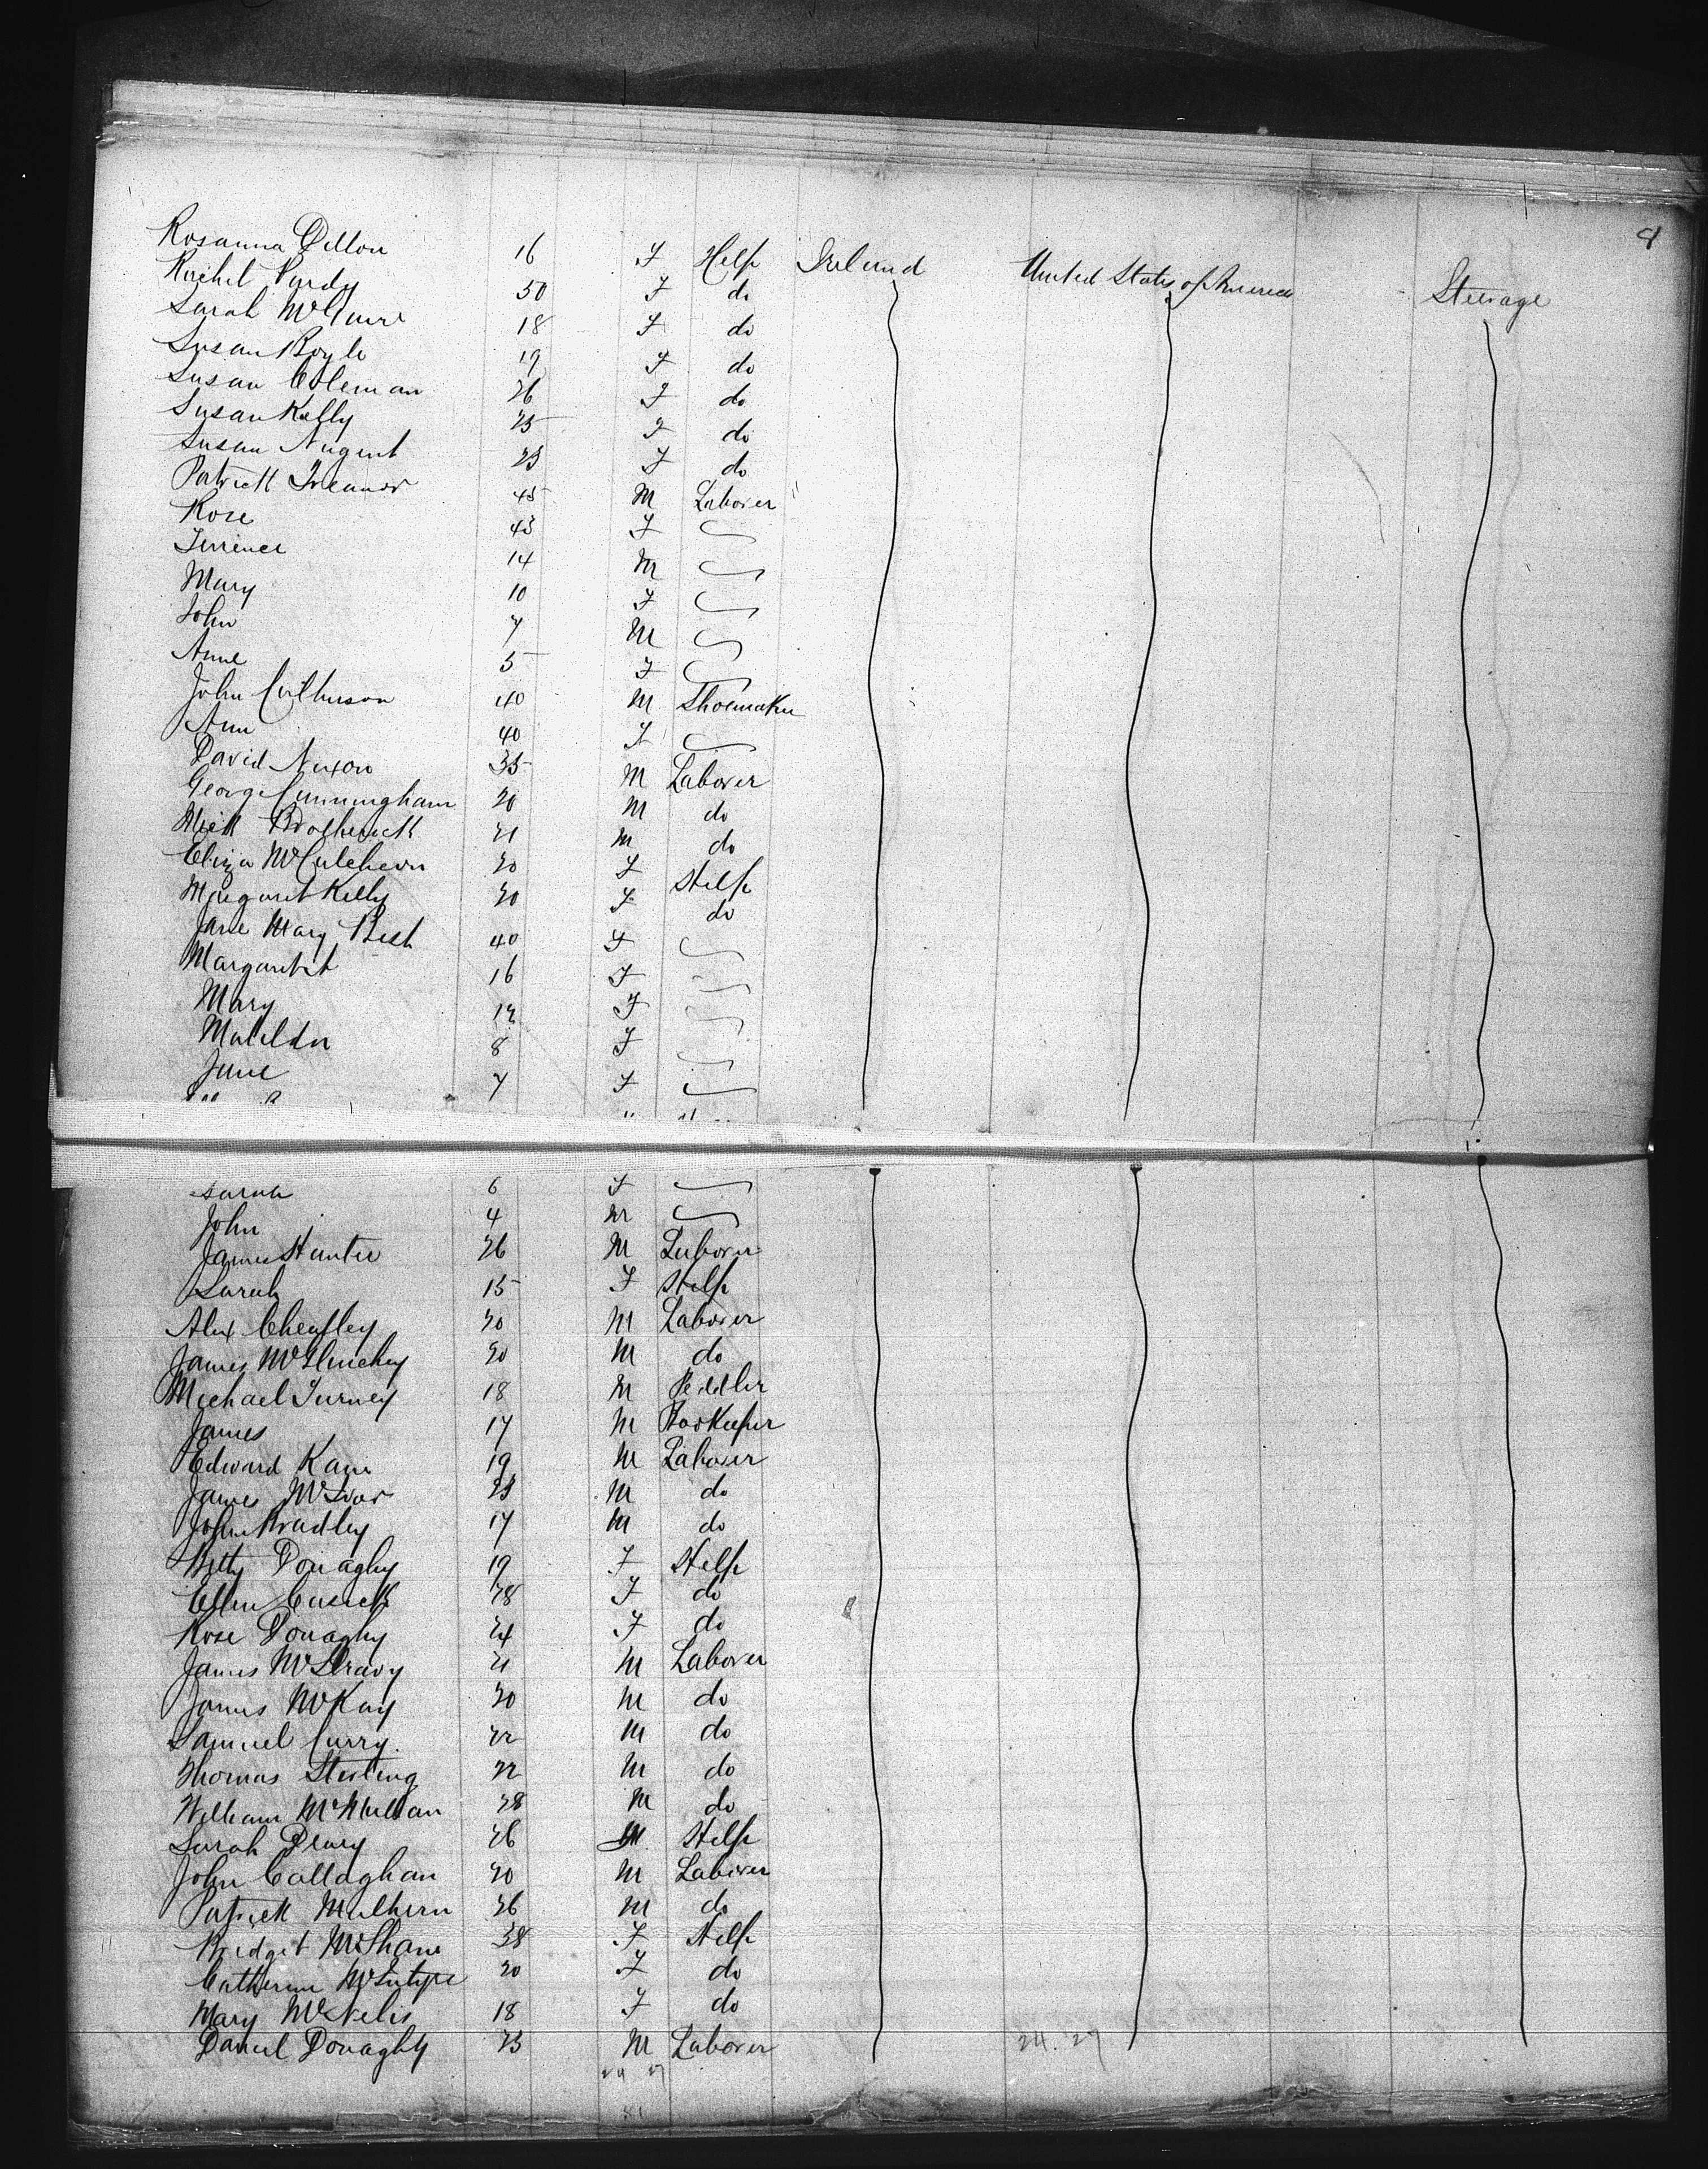 8
Rosanna Dillon 16 F Help Ireland United States of America Steerage
Rachel Purdy 50 F do
Sarah McGuire 18 F do
Susan Boyle 19 F do
Susan Coleman 26 F do
Susan Kelly 25 F do
Susan Nugent 23 F do
Patrick Treanor 45 M Laborer "
Rose 43 F
Terrence 14 M
Mary 10 F
John 7 M
Anne 5 F
John Cuthurson 40 M Shoemaker
Ann 40 F
David Nixon 35 M Laborer
George Cunningham 20 M do
Mick 21 M do
Eliza McCutcheon 20 F Help
Margaret Kelly 20 F do
Jane Mary 40 F
Margaret 16 F
Mary 12 F
Matilda 8 F
Jane 7 F
Sarah 6 F
John 4 M
James Hunter 26 M Laborer
Sarah 15 F Help
Alex 20 M Laborer
James McGlinchey 20 M do
Michael 18 M Peddler
James 17 M Bookeeper
Edward Kane 19 M Laborer
James McIvor 23 M do
John Bradley 17 M do
Betty Donaghy 19 F Help
Ellen Cusick 28 F do
Rose Donaghy 24 F do
James 21 M Laborer
James McKay 20 M do
Samuel Curry. 22 M do
Thomas Sterling 22 M do
William McMullan 28 M do
Sarah 26 Help
John Callaghan 20 M Laborer
Patrick Mulhern 26 M do
Bridget McShane 38 F Help
Catherine McIntyre 20 F do
Mary McNelis 18 F do
Daniel Donaghy 23 M Laborer
24. 27